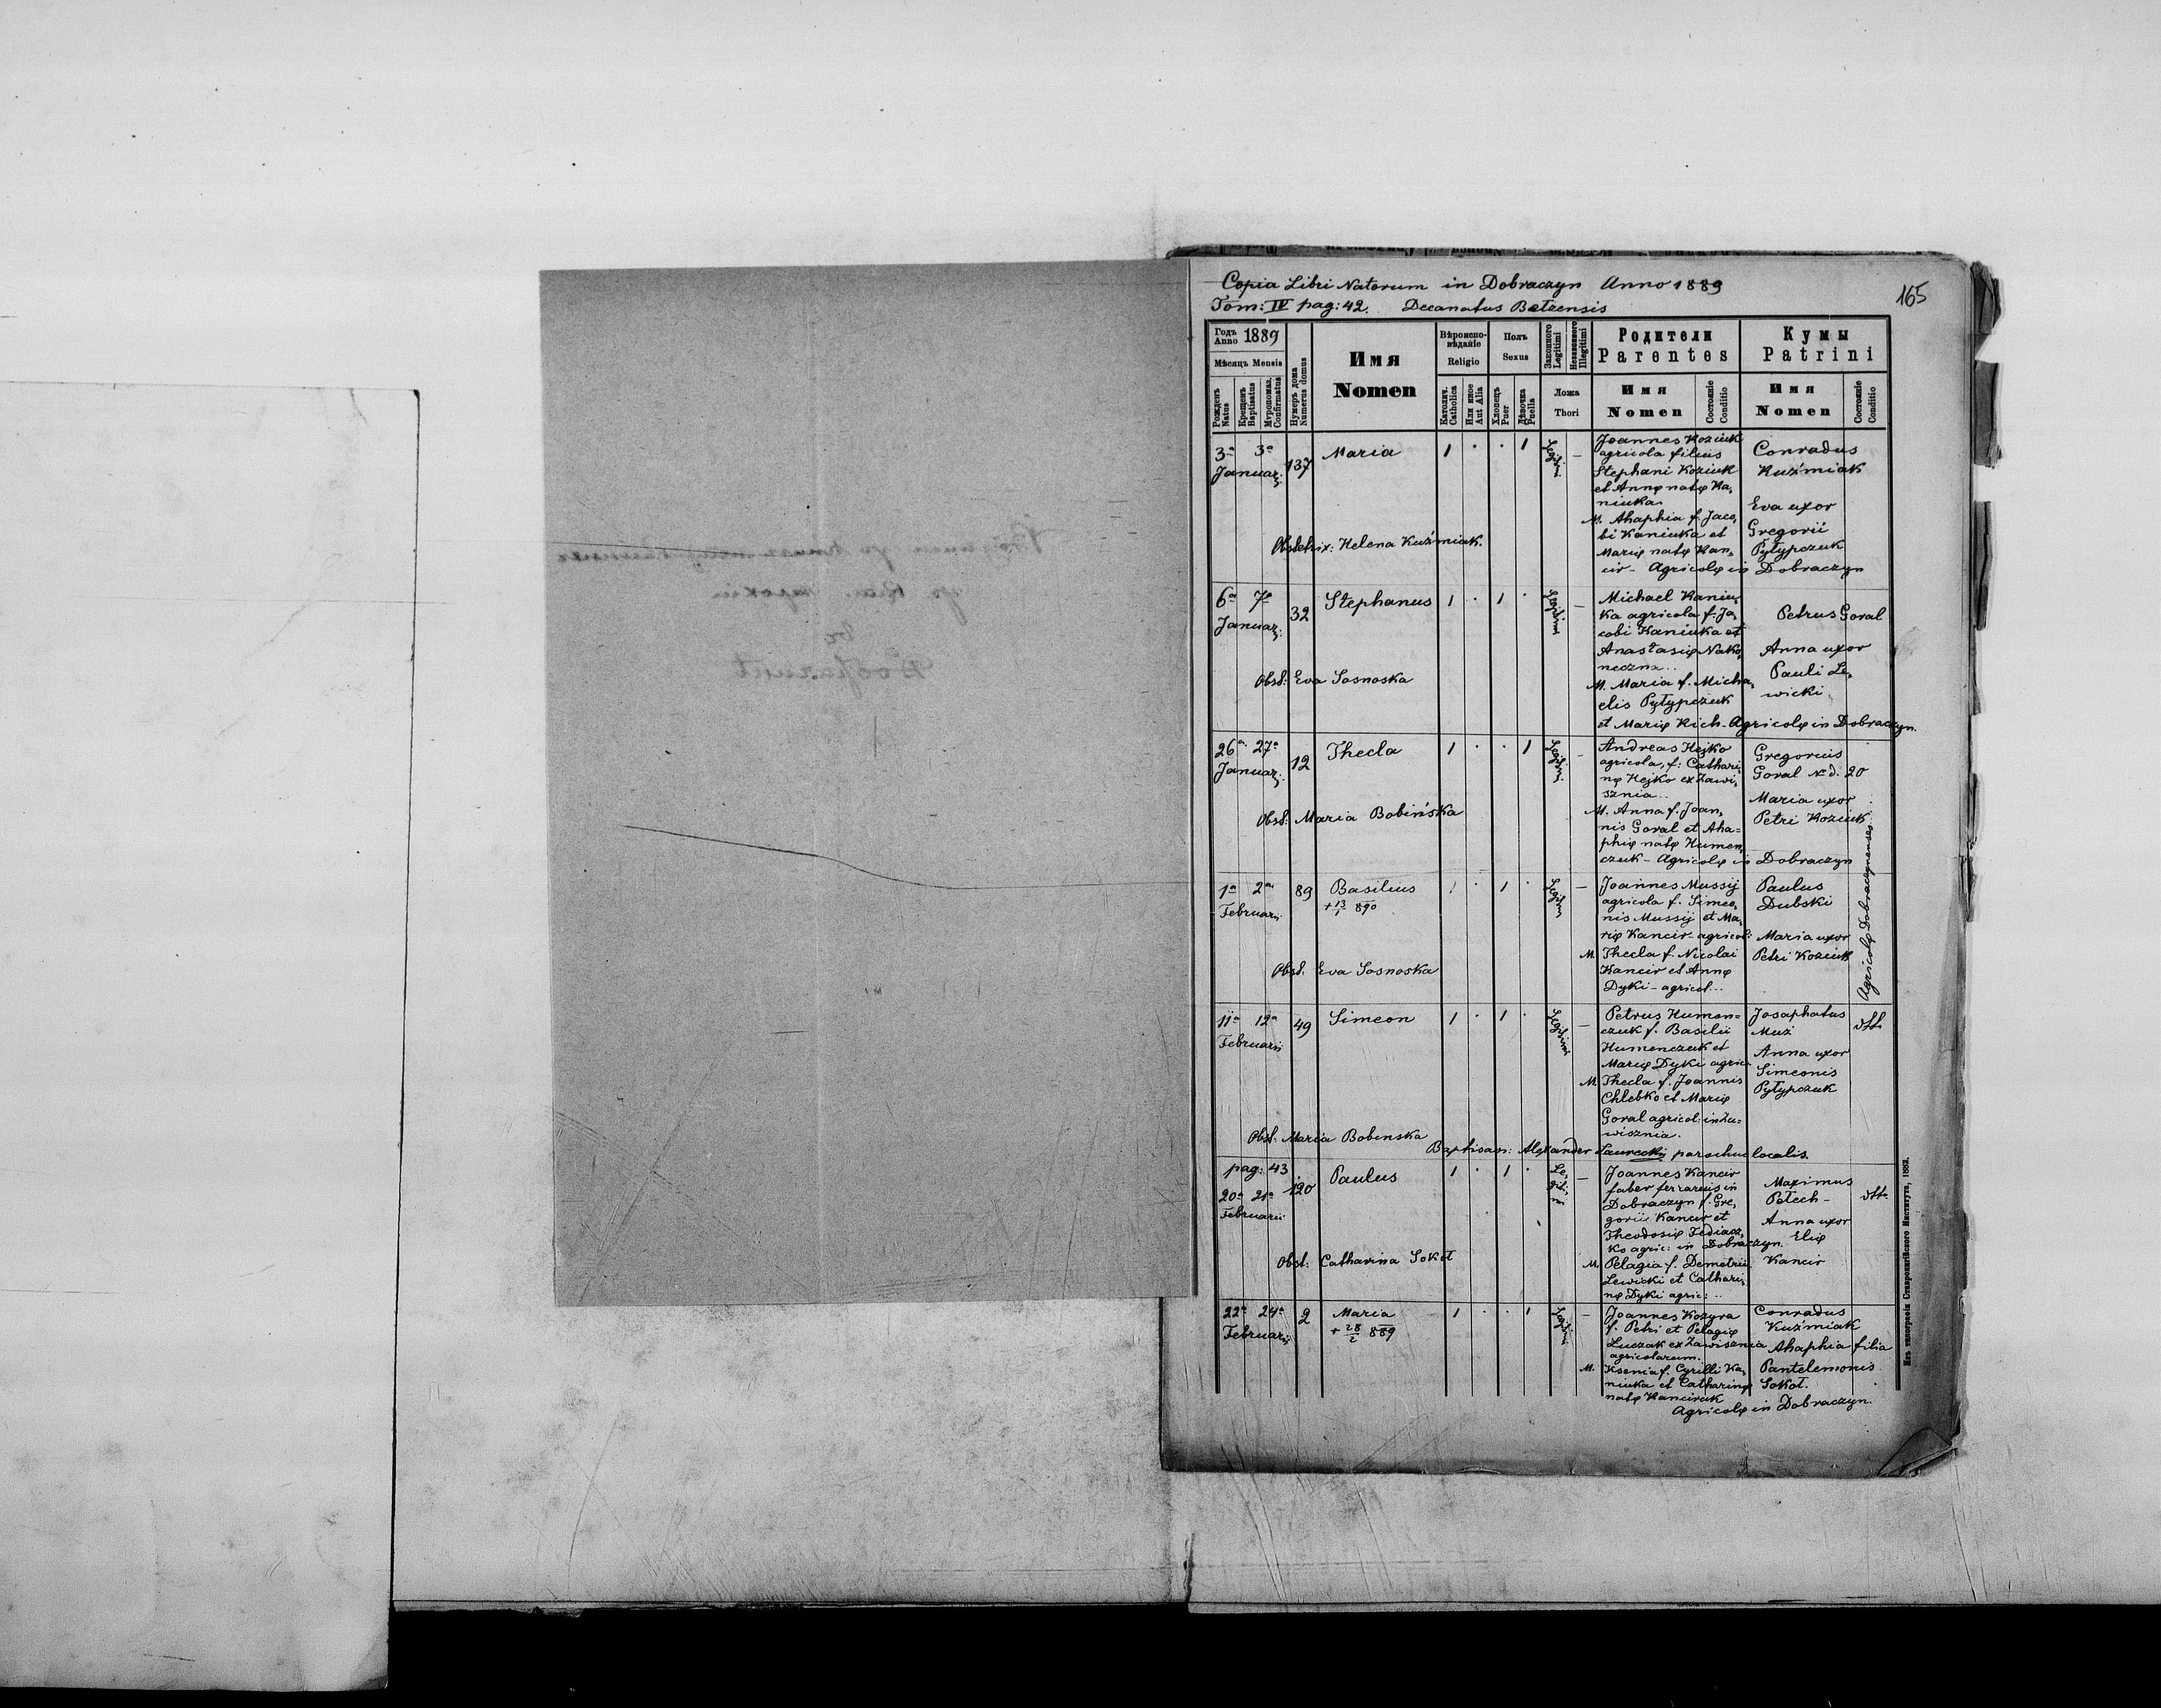 Copia Libri Natorum in Dobraczyn Anno 1889
165
Tom: IV pag: 42. Decanatus Bełzensis
Годъ Anno 1889
Мѣсяцъ Mensis
Рожденъ Natus
Крещенъ Baptisatus
Мѵропомаз. Confirmatus
Нумеръ дома Numerus domus
Имя
Nomen
Вѣроиспо-
вѣданіе
Religio
Католич. Catholica
Или иное Aut Alia
Полъ
Sexus
Хлопецъ Puer
Дѣвочка Puella
Законного Legitimi
Незаконного Illegitimi
Ложа
Thori
Родители
Parentes
Имя
Nomen
Состояніе Conditio
Кумы
Patrini
Имя
Nomen
Состояніе Conditio
3a 3a
Januar:
137
Maria
1 . . 1
Legitimi
–
Joannes Koziuk
agricola filius
Stephani Koziuk
et Annę natę Ka,
niuka
M. Ahaphia f. Jaco,
bi Kaniuka et
Marię natę Kan,
cir – Agricolę in Dobraczyn
Conradus
Kuźmiak
Eva uxor
Gregorii
Pyłypczuk
Obstetrix: Helena Kuźmiak.
6a 7a
Januar:
32
Stephanus
1 . 1 .
Legitimi
–
Michael Kaniu,
ka agricola f. Ja,
cobi Kaniuka et
Anastasię Nako,
neczna..
M. Maria f. Micha,
elis Pyłypczuk
et Marię Kich – Agricolę in Dobraczyn.
Petrus Goral
Anna uxor
Pauli Le,
wicki
Obst: Eva Sosnoska
26a 27a
Januar:
12
Thecla
1 . . 1
Legitimi
–
Andreas Hejko
agricola, f: Cathari,
nę Hejko ex Zawi,
sznia..
M. Anna f. Joan,
nis Goral et Aha=
phię natę Humen,
czuk – Agricolę in Dobraczyn
Gregorius
Goral No d. 20
Maria uxor
Petri Koziuk
Obst: Maria Bobińska
Agricolę Dobraczynenses
1a 2a
Februarii
89
Basilius
+ 13/1 890
1 . 1 .
Legitimi
–
Joannes Mussij
agricola f. Simeo,
nis Mussij et Ma,
rię Kancir – agricol:
M. Thecla f. Nicolai
Kancir et Annę
Dyki – agricol...
Paulus
Dubski
Maria uxor
Petri Koziuk
Obst. Eva Sosnoska
11a 12a
Februarii
49
Simeon
1 . 1 .
Legitimi
–
Petrus Humen=
czuk f. Basilii
Humenczuk et
Marię Dyki agric.
M. Thecla f. Joannis
Chlebko et Marię
Goral agricol: in Za=
wisznia.
Josaphatus
Muż
Anna uxor
Simeonis
Pyłypczuk
dtto
Obst. Maria Bobenska
Baptisavi: Alexander Laurecki parochus localis.
pag: 43
20a 21a
Februarii
120
Paulus
1 . 1 .
Le,
giti,
mi
–
Joannes Kancir
faber ferrareus in
Dobraczyn f. Gre,
gorii Kancir et
Theodosię Fediacz,
ko agric: in Dobraczyn.
M. Pelagia f. Demetrii
Lewicki et Cathari,
nę Dyki agric: ..
Maximus
Petech –
Anna uxor
Elię
Kancir
dtto
Obst: Catharina Sokoł
22a 24a
Februarii
2
Maria
+ 28/2 889
1 . . 1
Legitimi
–
Joannes Kozyra
f. Petri et Pelagię
Luczak ex Zawisznia
agricolarum.
M. Ksenia f. Cyrilli Ka,
niuka et Catharinę
natę Kanciruk
Conradus
Kuźmiak
Ahaphia filia
Pantelemonis
Sokoł.
Agricolę in Dobraczyn.
Изъ типографіи Ставропигійского Института, 1882.